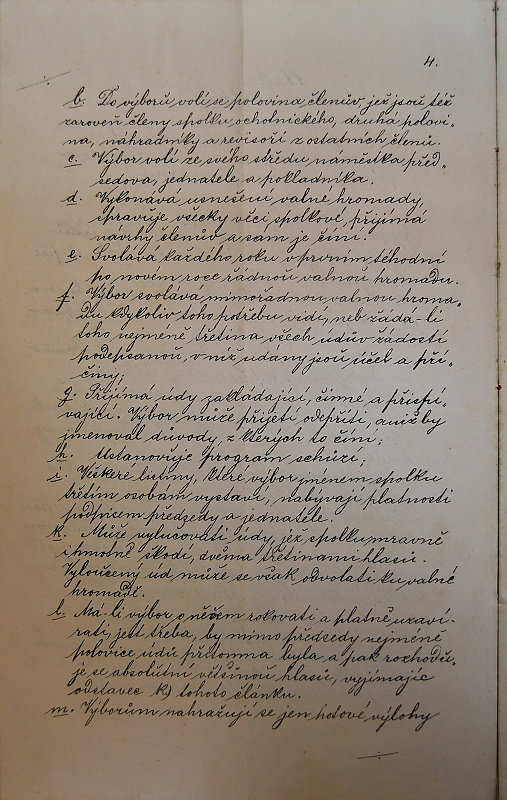 4.
b. Do výborů volí se polovina členův, jež jsou též
zároveň členy spolku ochotnického, druhá polovi-
na, náhradníky a revisoři z ostatních členů.
c. Výbor volí ze svého středu náměstka před-
sedova, jednatele a pokladníka.
d. Vykonává usnešení valné hromady,
spravuje všecky věci spolkové, přijímá
návrhy členův a sám je činí.
e. Svolává každého roku v prvním téhodní
po novém roce řádnou valnou hromadu.
f. Výbor svolává mimořádnou valnou hroma-
du kdykoliv toho potřebu vidí, neb žádá-li
toho nejméně třetina všech údův žádostí
podepsanou, v níž udány jsou účel a pří-
činy;
g. Přijímá údy zakládající, činné a přispí-
vající. Výbor může přijetí odepříti, aniž by
jmenoval důvody, z kterých to činí;
h. Ustanovuje program schůzí;
i. Veškeré listiny, které výbor jmenem spolku
třetím osobám vystaví, nabývají platnosti
podpisem předsedy a jednatele.
k. Může vylučovati údy, jež spolku mravně
i hmotně škodí, dvěma třetinami hlasů.
Vyloučený úd může se však odvolati ku valné
hromadě.
l. Má li výbor o něčem rokovati a platně uzaví-
rati, jest třeba, by mimo předsedy nejméně
polovice údů přítomna byla a pak rozhodu-
je se absolutní většinou hlasů, vyjímajíc
odstavec k) tohoto článku.
m. Výborům nahražují se jen hotové výlohy